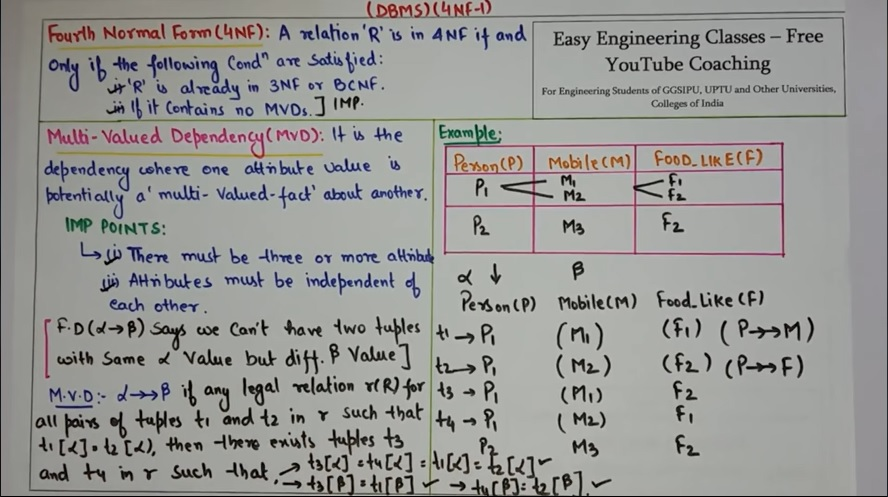 (DBMS)(4NF-1)
Fourth Normal Form(4NF): A relation 'R' is in 4NF if and
Only if the following Condⁿ are Satisfied:
i) 'R' is already in 3NF or BCNF.
ii) If it Contains no MVDs.] IMP.
Easy Engineering Classes – Free
YouTube Coaching
For Engineering Students of GGSIPU, UPTU and Other Universities,
Colleges of India
Multi-Valued Dependency(MVD): It is the
dependency where one attribute value is
potentially a 'multi-valued-fact' about another.
IMP POINTS:
↳ i) There must be three or more attribute
ii) Attributes must be independent of
each other.
[F.D(α→β) Says we Can't have two tuples
with Same α Value but diff. β Value]
M.V.D:- α→→β if any legal relation r(R) for
all pairs of tuples t1 and t2 in r such that
t1[α]=t2[α], then there exists tuples t3
and t4 in r such that, → t3[α]=t4[α]=t1[α]=t2[α]✓
→ t3[β]=t1[β] ✓ → t4[β]=t2[β] ✓
Example:
Person(P) Mobile(M) FOOD_LIKE(F)
P1 M1 F1
M2 F2
P2 M3 F2
α ↓ β
Person(P) Mobile(M) Food_Like(F)
t1→P1 (M1) (F1) (P→→M)
t2→P1 (M2) (F2) (P→→F)
t3→P1 (M1) F2
t4→P1 (M2) F1
P2 M3 F2